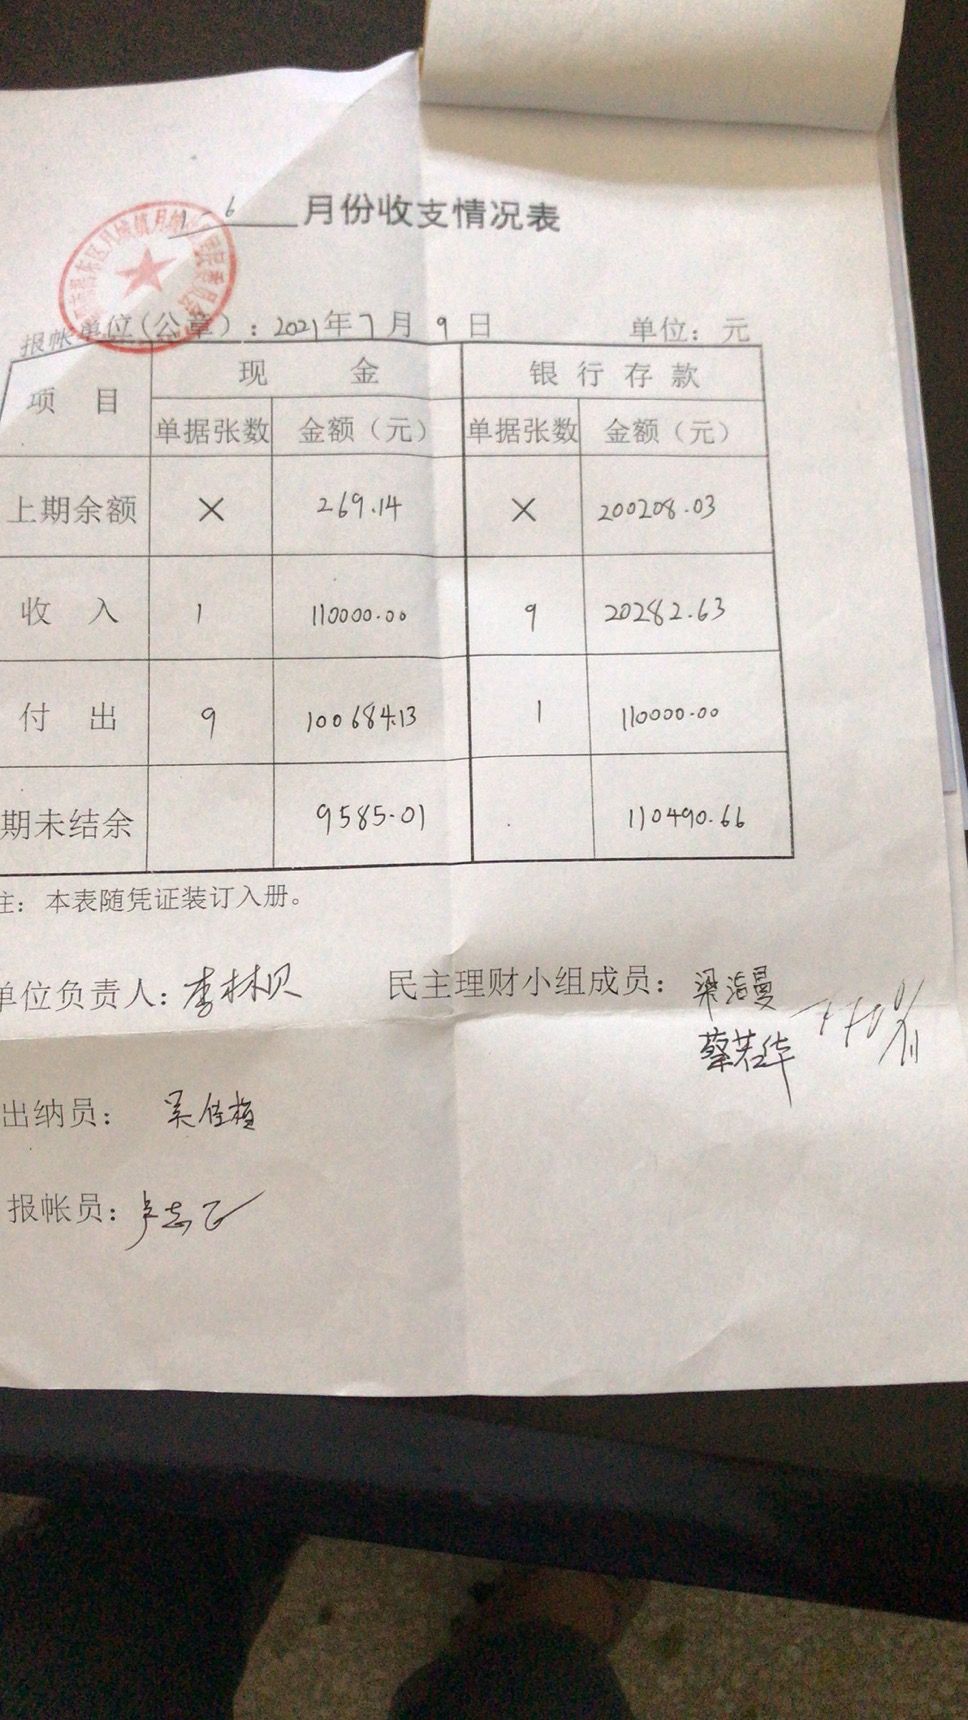 1-6 月份收支情况表
报帐单位(公章):2021年7月9日 单位:元
项 目 现 金 银行存款
单据张数 金额(元) 单据张数 金额(元)
上期余额 × 269.14 × 200208.03
收 入 1 110000.00 9 20282.63
付 出 9 100684.13 1 110000.00
期未结余 9585.01 110490.66
注:本表随凭证装订入册。
单位负责人:李林贝 民主理财小组成员:梁洁曼
蔡若华
出纳员:吴佳植
报帐员:卢志飞